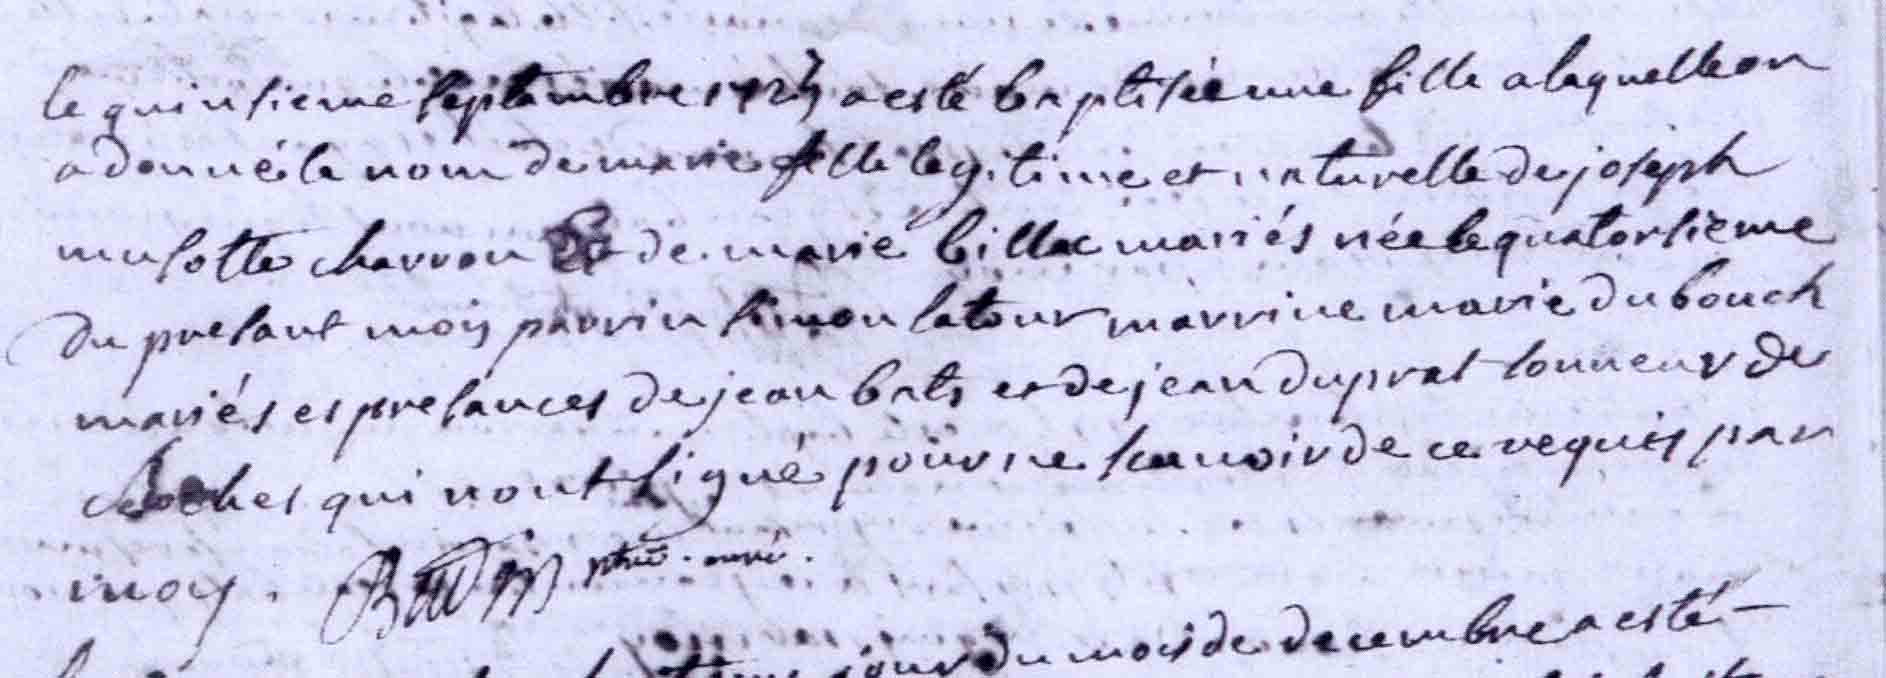 le quinsieme septambre a esté baptisée une fille a laquelle on
a donné le nom de marie fille legitime et naturelle de joseph
musotte charron Et de marie billac mariés née le quatorsieme
du presant mois parrin simon latour marrine marie dubouch
mariés es presances de jean bats et de jean duprat sonneur de
cloches qui nont signé pour ne scavoir de ce requis par
moy. ptre curé.
jour du mois de decembre a esté